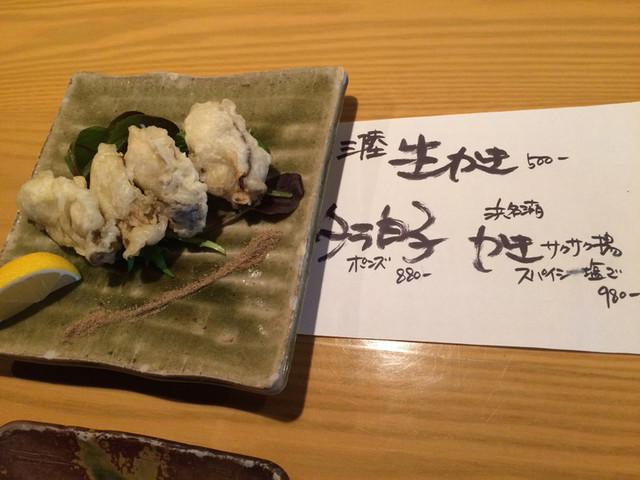 三陸 生かき 500-
タラ白子
ポンズ
880-
浜名湖
かき サクサク揚
スパイシー塩で
980-